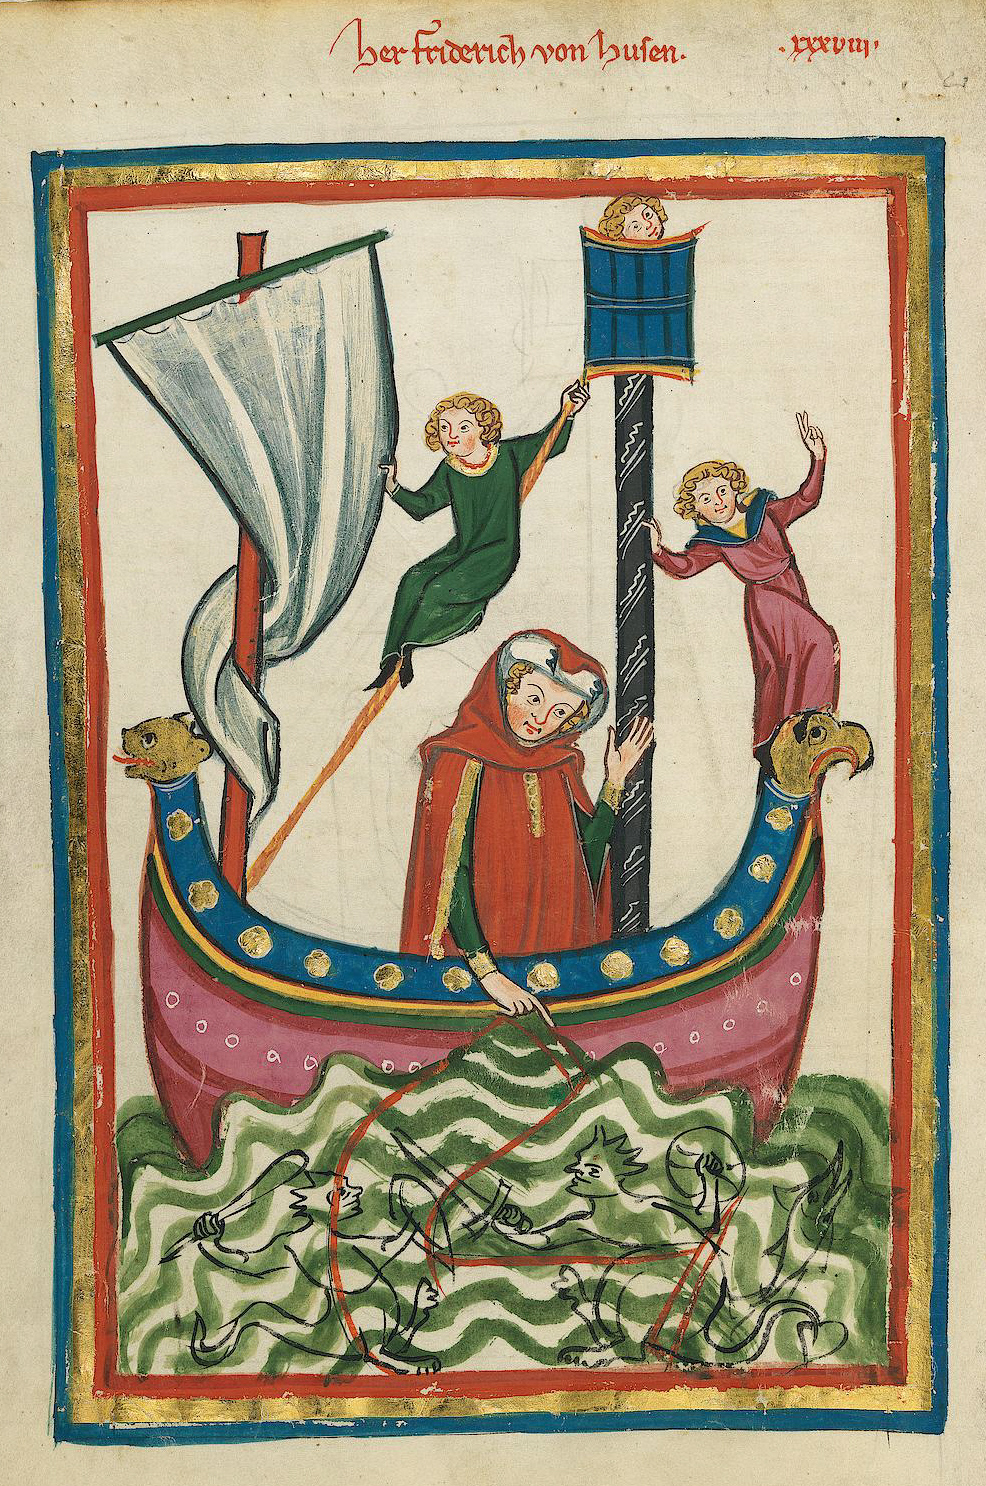 Her friderich von husen. .xxxviii.